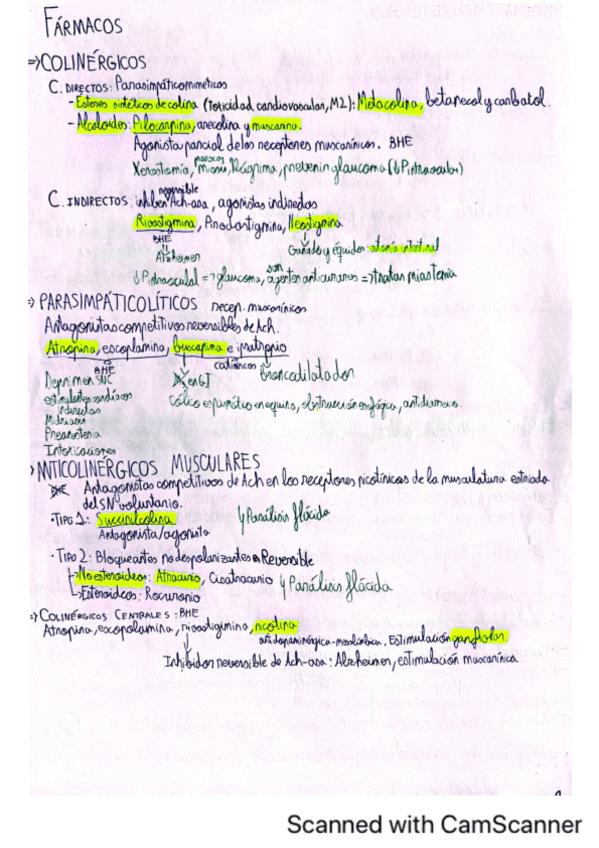 FÁRMACOS
⇒COLINÉRGICOS
C. DIRECTOS: Parasimpáticomiméticos
- Ésteres sintéticos de colina (Toxicidad cardiovascular, M2): Metacolina, betanecol y carbacol.
- Alcaloides: Pilocarpina, arecolina y muscarina.
Agonista parcial de los receptores muscarínicos. BHE
Xerostomía, miosis, lágrima, prevenir glaucoma (↓P intraocular)
reversible
C. INDIRECTOS: inhiben Ach-asa, agonistas indirectos
Rivastigmina, Neostigmina
BHE
Ganado y équidos: atonía intestinal
Alzheimer
son
glaucoma, agentes anticurares ⇒ tratar miastenia
⇒ PARASIMPÁTICOLÍTICOS recep. muscarínicos
Antagonistas competitivos reversibles de Ach.
Atropina, escoplamina, buscapina e ipratropio
BHE
catiónicos
Broncodilatador
Deprimen SNC
en GI
estimulantes cardiacos
indirectos
Cólico espasmático en equino, obstrucción esofágica, antidiarreico.
Midriasis
Preanestesia
Intoxicaciones
ANTICOLINÉRGICOS MUSCULARES
BHE Antagonistas competitivos de Ach en los receptores nicotínicos de la musculatura estriada
del SN voluntario.
· TIPO 1: Succinilcolina
Parálisis fláccida
Antagonista/agonista
· TIPO 2: Bloqueantes no despolarizantes Reversible
No esteroideos: Atracurio, Cisatracurio
Parálisis flácida
Esteroideos: Rocuronio
⇒ COLINÉRGICOS CENTRALES: BHE
Atropina, escopolamina, rivastigimina, nicotina
Estimulación gangliolar
Inhibidor reversible de Ach-asa: Alzheimer, estimulación muscarínica
Scanned with CamScanner